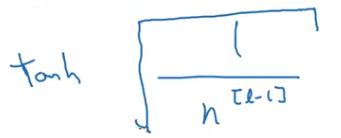 tanh √(1/n^[l-1])